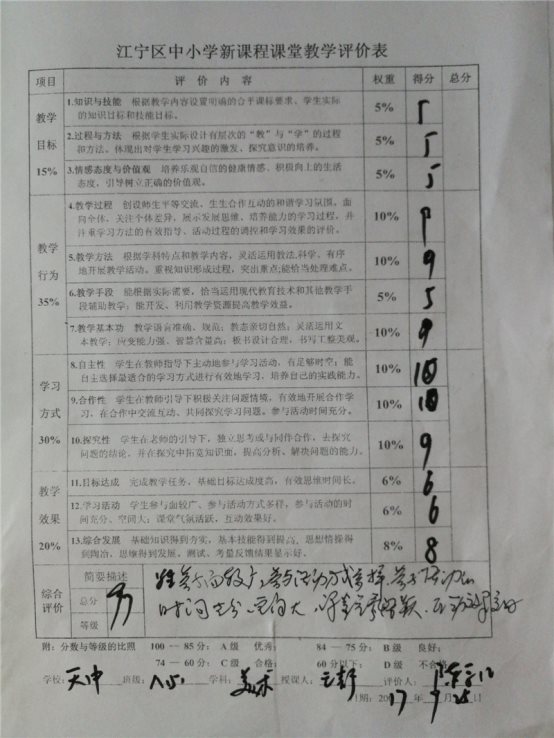 江宁区中小学新课程课堂教学评价表
项目 评 价 内 容 权重 得分 总分
教学目标 15%
1.知识与技能 根据教学内容设置明确的合乎课标要求、学生实际
的知识目标和技能目标。 5% 5
2.过程与方法 根据学生实际设计有层次的“教”与“学”的过程
和方法。体现出对学生学习兴趣的激发、探究意识的培养。 5% 5
3.情感态度与价值观 培养乐观自信的健康情感、积极向上的生活
态度，引导树立正确的价值观。 5% 5
教学行为 35%
4.教学过程 创设师生平等交流、生生合作互动的和谐学习氛围。面
向全体、关注个体差异，展示发展思维、培养能力的学习过程，并
注重学习方法的有效指导、活动过程的调控和学习效果的评价。 10% 9
5.教学方法 根据学科特点和教学内容，灵活运用教法.科学、有序
地开展教学活动。重视知识形成过程，突出重点;能恰当处理难点。 10% 9
6.教学手段 能根据实际需要，恰当运用现代教育技术和其他教学手
段辅助教学；能开发、利用教学资源提高教学效益。 5% 5
7.教学基本功 教学语言准确、规范；教态亲切自然；灵活运用文
本教学；应变能力强、智慧含量高；板书设计合理，书写工整美观。 10% 9
学习方式 30%
8.自主性 学生在教师指导下主动地参与学习活动，有足够时空；能
自主选择最适合的学习方式进行有效地学习，培养自己的实践能力。 10% 10
9.合作性 学生在教师引导下积极关注问题情境，有效地开展合作学
习，在合作中交流互动、共同探究学习问题。参与活动时间充分。 10% 10
10.探究性 学生在老师的引导下，独立思考或与同伴合作，去探究
问题的结论，并在探究中拓宽知识面，提高分析、解决问题的能力。 10% 9
教学效果 20%
11.目标达成 完成教学任务，基础目标达成度高，有效思维时间长。 6% 6
12.学习活动 学生参与面较广、参与活动方式多样，参与活动的时
间充分、空间大；课堂气氛活跃，互动效果好。 6% 6
13.综合发展 基础知识得到夯实，基本技能得到提高，思想情操得
到陶冶，思维得到发展。测试、考量反馈结果显示好。 8% 8
综合评价 简要描述
总分
等级
附：分数与等级的比照 100 — 85分： A 级 优秀； 84 — 75分： B 级 良好；
74 — 60分： C 级 合格； 60分以下： D 级 不合格
学校： 天中 班级： 八 学科： 美术 授课人： 评价人：
日期：200 17 年 9 月 25 日